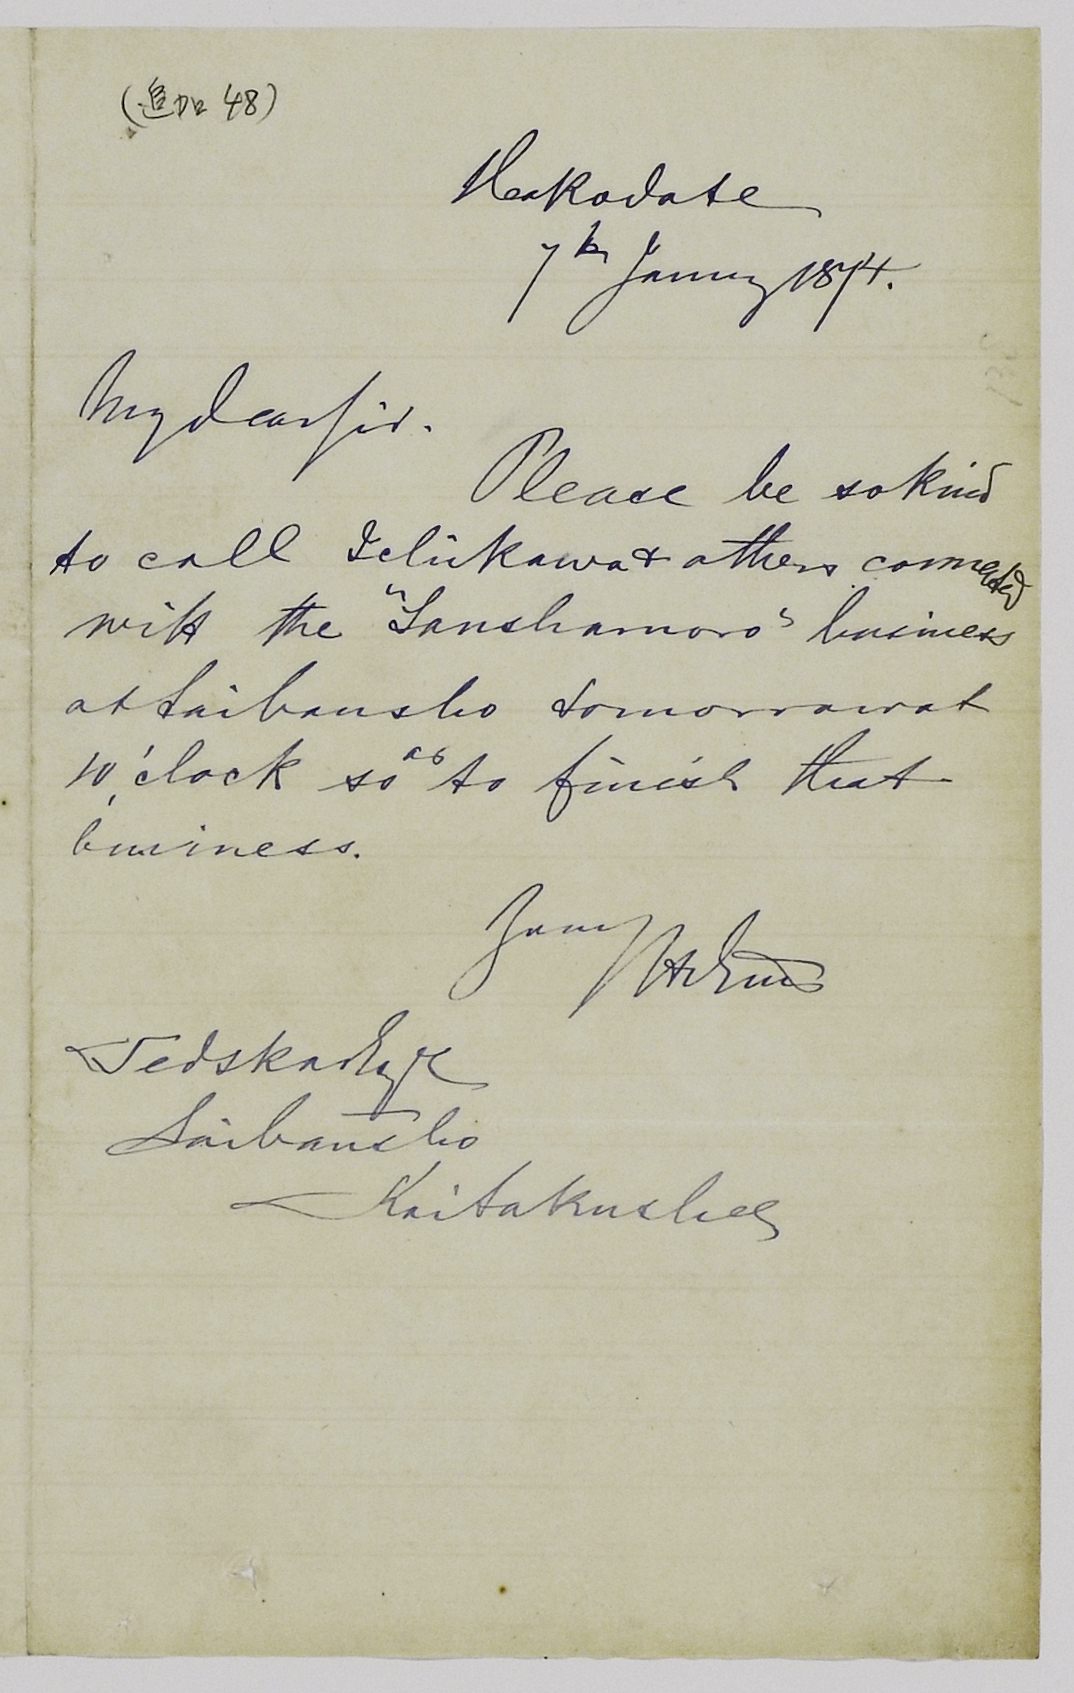 (追加 48)
Hakodate
7th January 1874.
My dear Sir.
Please be so kind
to call Ichikawa & others connected
with the "Sanshamoro" business
at Saibansho tomorrow at
10 o'clock so as to finish that
business.
Yours
Tedska Esqre
Saibansho
Kaitakushee